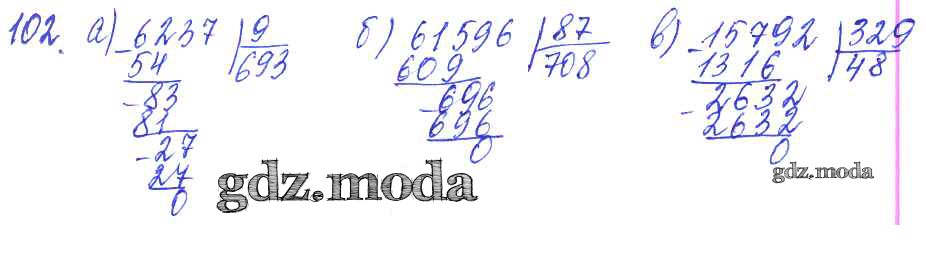 102. а) 6237 | 9 б) 61596 | 87 в) 15792 | 329
54 693 609 708 1316 48
-83 -696 -2632
81 696 2632
-27 0 0
27
0
gdz.moda
gdz.moda